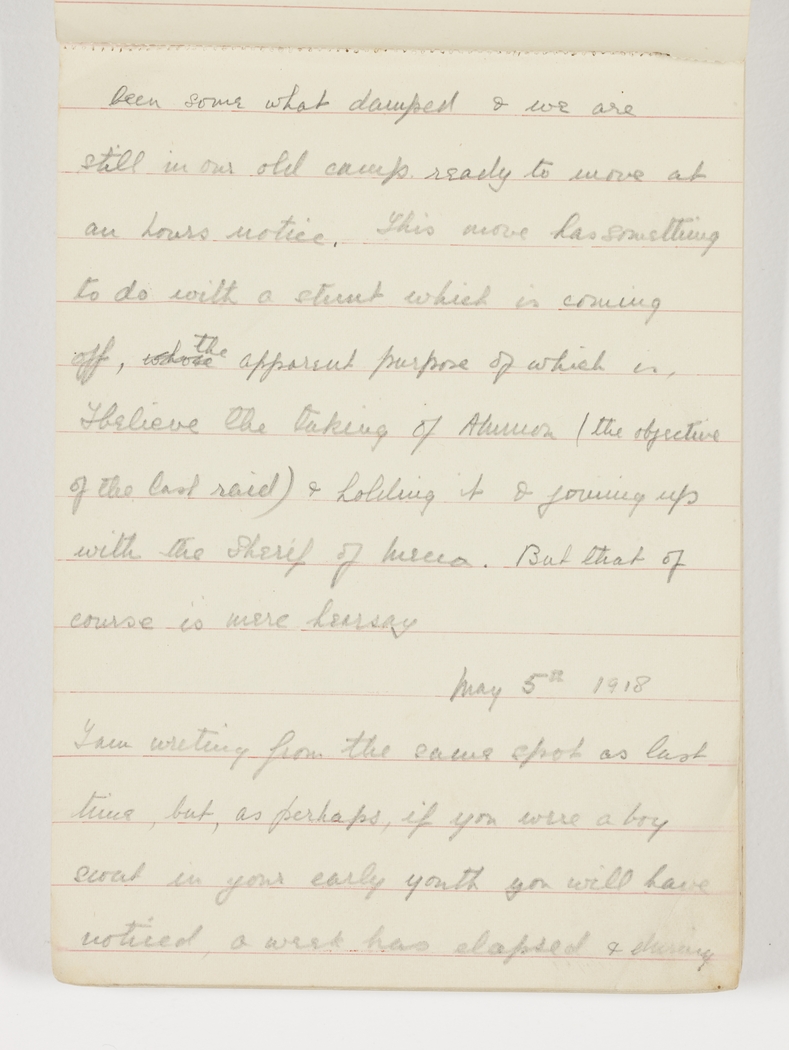 been some what damped & we are
still in our old camp ready to move at
an hours notice. This move has something
to do with a stunt which is coming
off, whose the apparent purpose of which is,
I believe the taking of Ammon (the objective
of the last raid) & holding it & joining up
with the Sherif of Mecca. But that of
course is mere hearsay
May 5th 1918
I am writing from the same spot as last
time, but, as perhaps, if you were a boy
scout in your early youth you will have
noticed, a week has elapsed & during